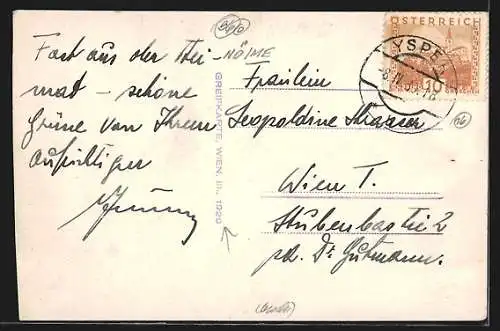 Fast aus der Hei-
mat - schöne
Grüße von Ihrem
Aufrichtiger
NÖ/ME
GREIFKARTE, WIEN, III., 1929
Fräulein
Leopoldine
Wien I.
Stubenbastei 2
pa. Dr Gutmann.
ÖSTERREICH
YSPER
10